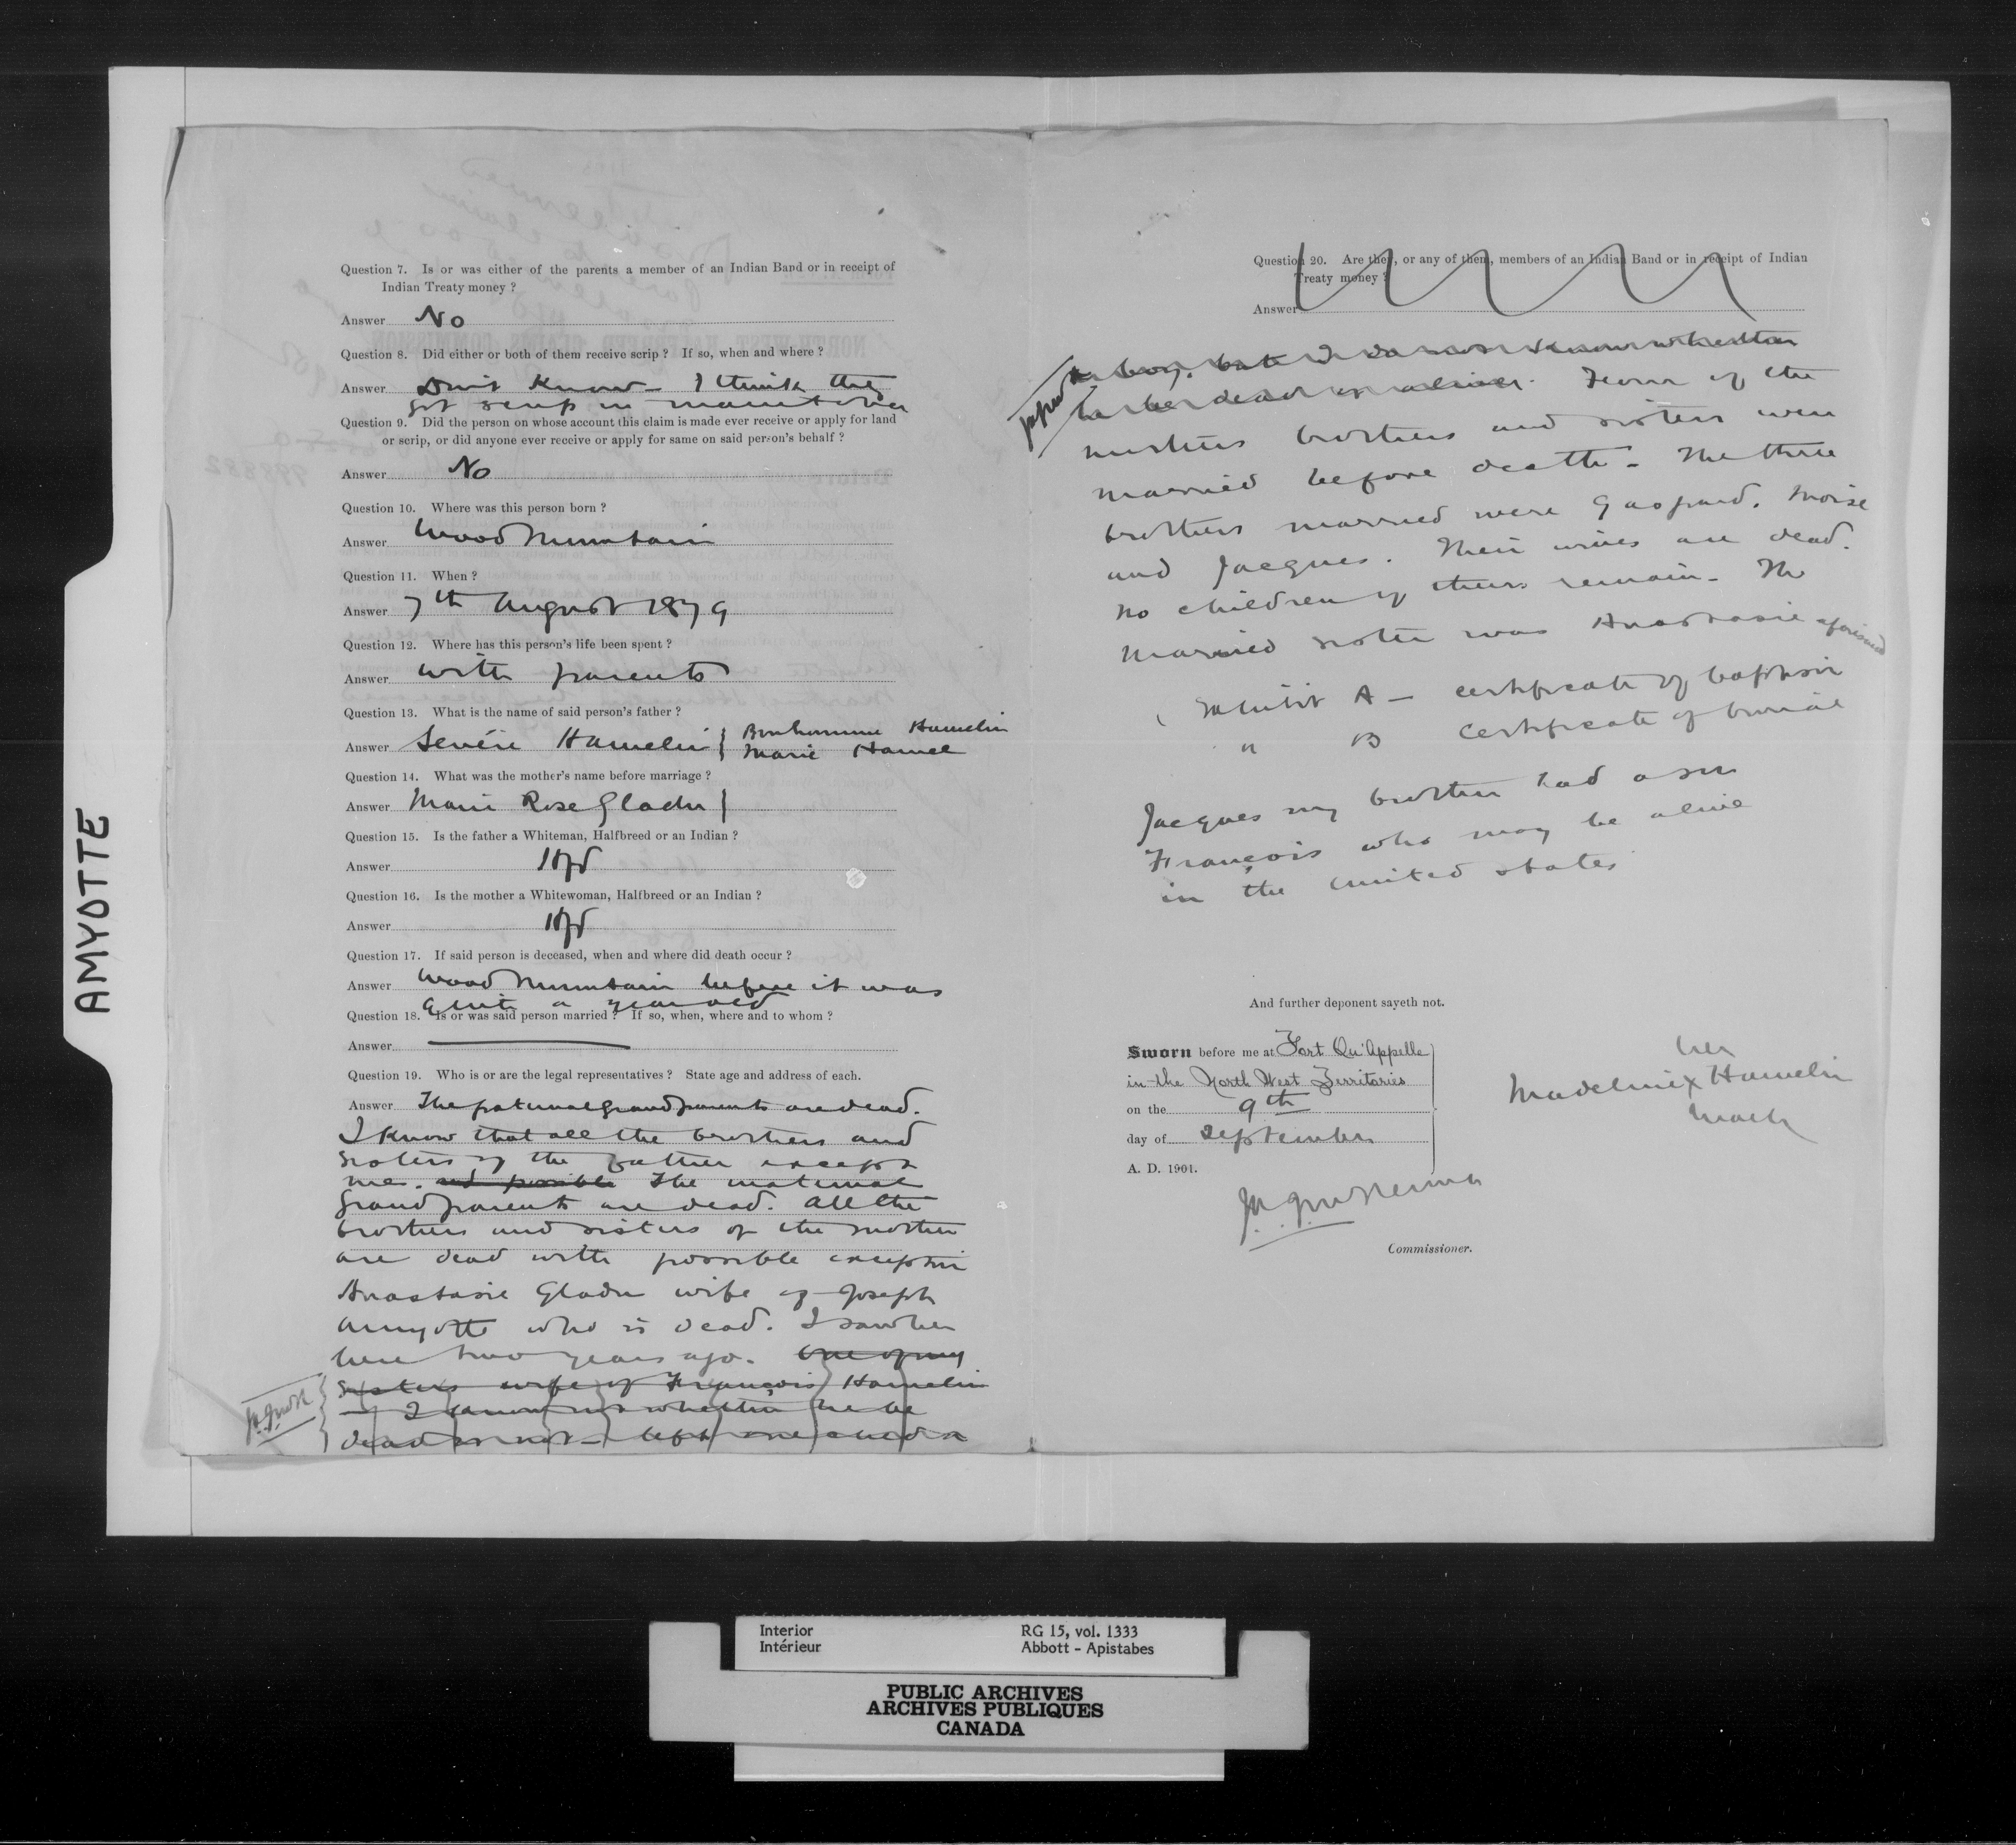 AMYOTTE
Question 7. Is or was either of the parents a member of an Indian Band or in receipt of
Indian Treaty money ?
Answer No
Question 8. Did either or both of them receive scrip ? If so, when and where ?
Answer Don't Know – I think they
got scrip in Manitoba
Question 9. Did the person on whose account this claim is made ever receive or apply for land
or scrip, or did anyone ever receive or apply for same on said person's behalf ?
Answer No
Question 10. Where was this person born ?
Answer Wood Mountain
Question 11. When ?
Answer 7th August 1879
Question 12. Where has this person's life been spent ?
Answer with parents
Question 13. What is the name of said person's father ?
Answer Sevére Hamelin { Bonhomme Hamelin
Marie Hamel
Question 14. What was the mother's name before marriage ?
Answer Marie Rose Gladu }
Question 15. Is the father a Whiteman, Halfbreed or an Indian ?
Answer Hfd
Question 16. Is the mother a Whitewoman, Halfbreed or an Indian ?
Answer Hfd
Question 17. If said person is deceased, when and where did death occur ?
Answer Wood Mountain before it was
quite a year old
Question 18. Is or was said person married ? If so, when, where and to whom ?
Answer
Question 19. Who is or are the legal representatives ? State age and address of each.
Answer The paternal grand parents are dead.
I know that all the brothers and
sisters of the father except
me. and possible The maternal
grandparents are dead. All the
brothers and sisters of the mother
are dead with possible exception
Anastasie Gladu wife of Joseph
Amyotte who is dead. I saw her
here two years ago. One of my
sisters wife of François Hamelin
– I know not whether he be
dead or not – left one child a
Question 20. Are they, or any of them, members of an Indian Band or in receipt of Indian
Treaty money ?
Answer
boy, but I do not know whether
he be dead or alive. Four of the
mothers brothers and sisters were
married before death – The three
brothers married were Gaspard, Moise
and Jacques. Their wives are dead.
No children of theirs remain – The
married sister was Anastasie aforesaid
Exhibit A – certificate of baptism
" B certificate of burial
Jacques my brother had a son
François who may be alive
in the united states
And further deponent sayeth not.
Sworn before me at Fort Qu'Appelle
in the North West Territories
on the 9th
day of September
A. D. 1901.
her
Madeline x Hamelin
mark
Commissioner.
Interior RG 15, vol. 1333
Intérieur Abbott - Apistabes
PUBLIC ARCHIVES
ARCHIVES PUBLIQUES
CANADA